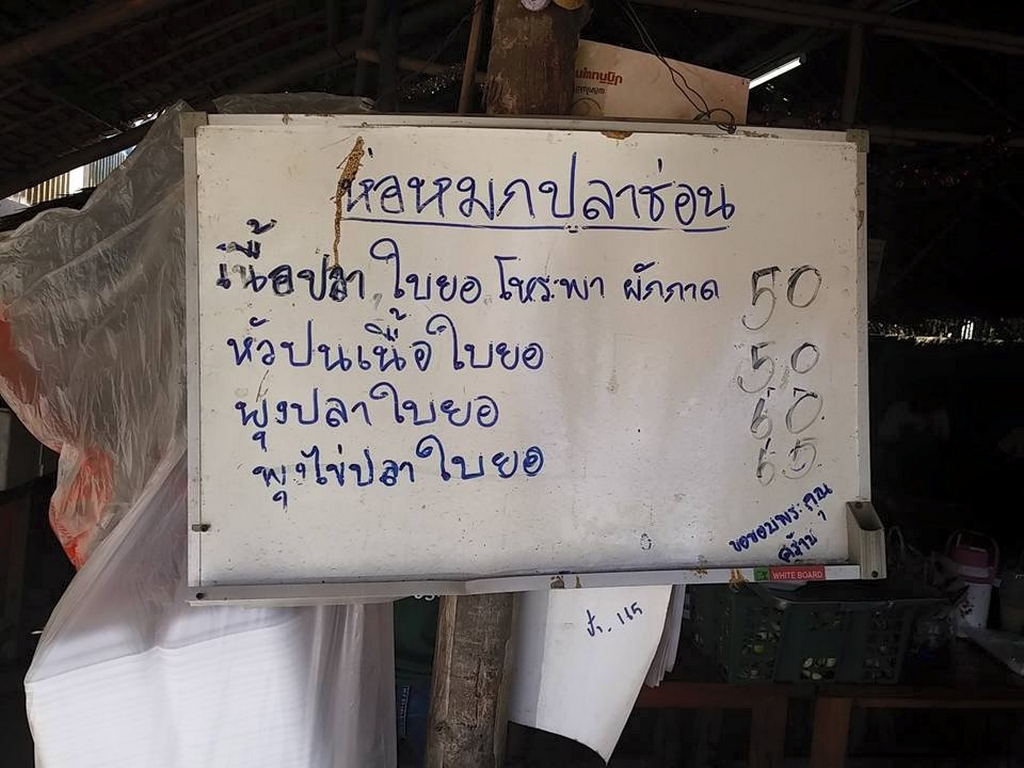 ห่อหมกปลาช่อน
เนื้อปลา ใบยอ โหระพา ผักกาด 50
หัวปนเนื้อใบยอ 50
พุงปลาใบยอ 60
พุงไข่ปลาใบยอ 65
ขอขอบพระคุณ
คร้าบ
WHITE BOARD